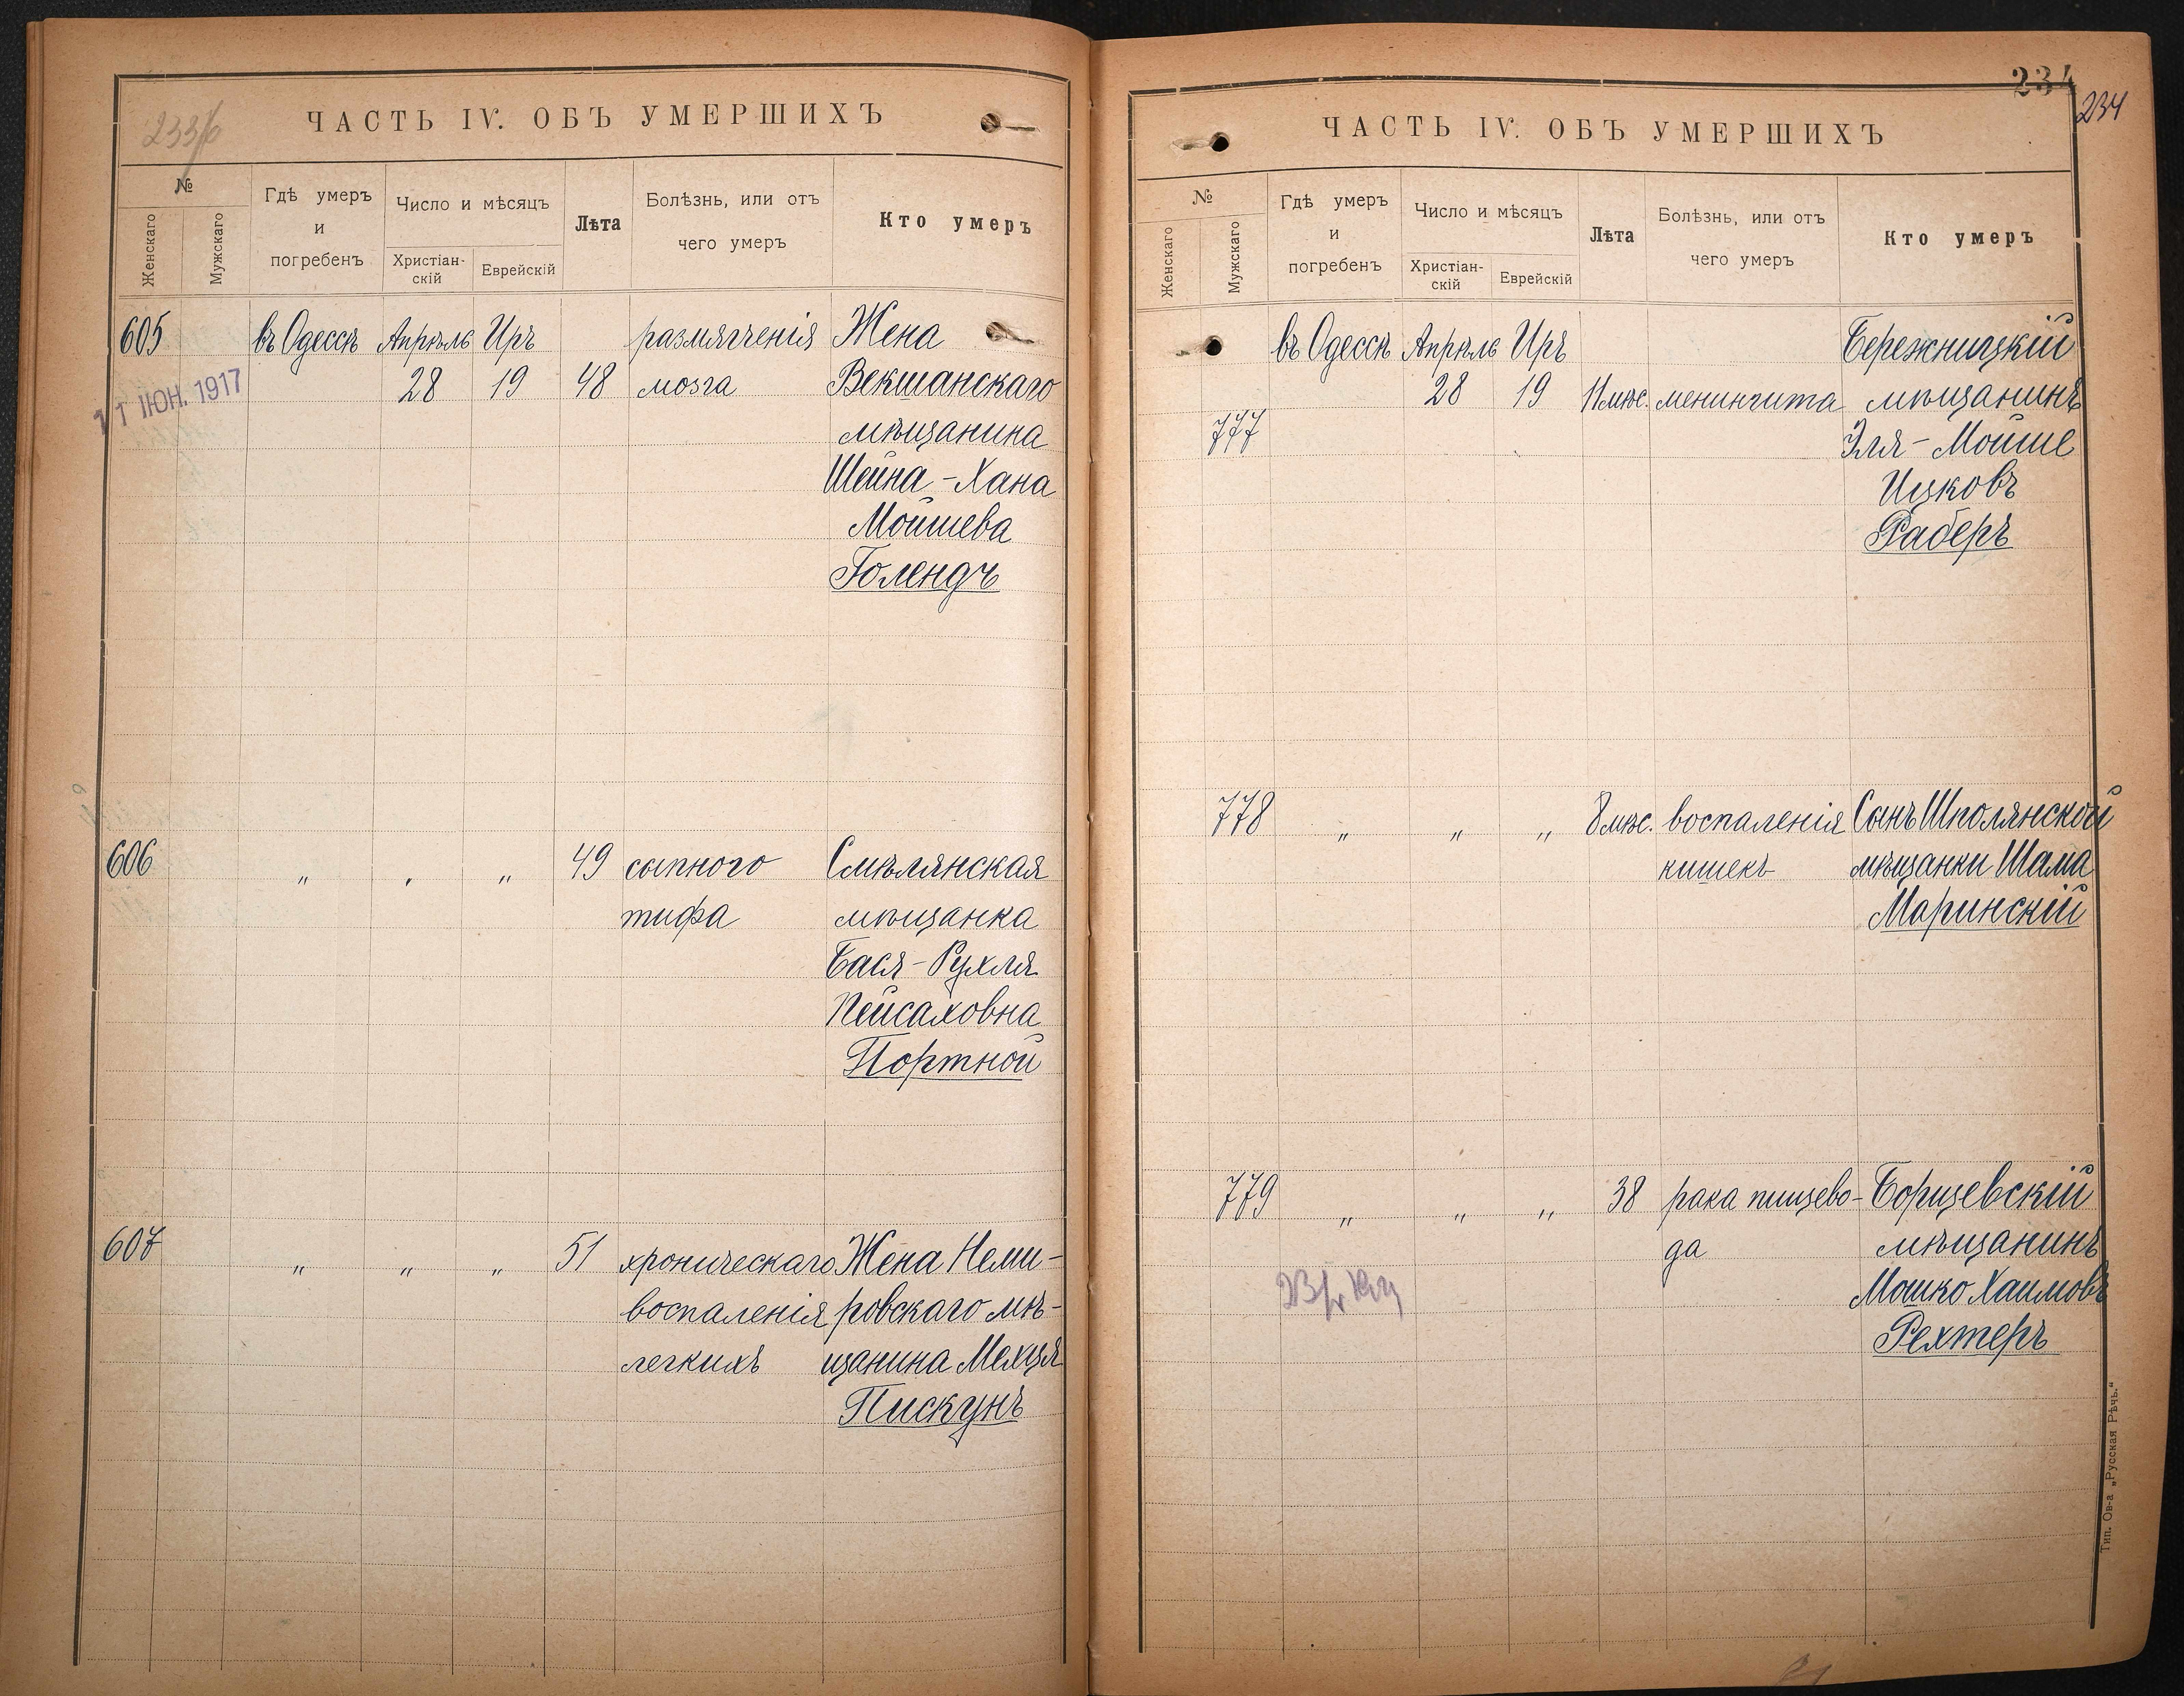 233/б
ЧАСТЬ IV. ОБЪ УМЕРШИХЪ
№
Женскаго
Мужскаго
Гдѣ умеръ
и
погребенъ
Число и мѣсяцъ
Христіан-
скій
Еврейскій
Лѣта
Болѣзнь, или отъ
чего умеръ
Кто умеръ
605 въ Одессѣ Апрѣль Иръ размягченія Жена
28 19 48 мозга Векшанскаго
11 ІЮН. 1917
мѣщанина
Шейна-Хана
Мойшева
Голендъ
606 " " " 49 сыпного Смѣлянская
тифа мѣщанка
Бася-Рухля
Пейсаховна
Портной
607 " " " 51 хроническаго Жена Неми-
воспаленія ровскаго мѣ-
легкихъ щанина Мехця
Пискунъ
234
234
ЧАСТЬ IV. ОБЪ УМЕРШИХЪ
№
Женскаго
Мужскаго
Гдѣ умеръ
и
погребенъ
Число и мѣсяцъ
Христіан-
скій
Еврейскій
Лѣта
Болѣзнь, или отъ
чего умеръ
Кто умеръ
въ Одессѣ Апрѣль Иръ Бережницкій
28 19 11 мѣс. менингита мѣщанинъ
777 Эля-Мойше
Ицковъ
Фаберъ
778 " " " 8 мѣс. воспаленія Сынъ Шполянской
кишекъ мѣщанки Шама
Маринскій
779 " " " 38 рака пищево- Борщевскій
да мѣщанинъ
Мошко Хаимовъ
Рехтеръ
Тип. Ов-а „Русская Рѣчь.“